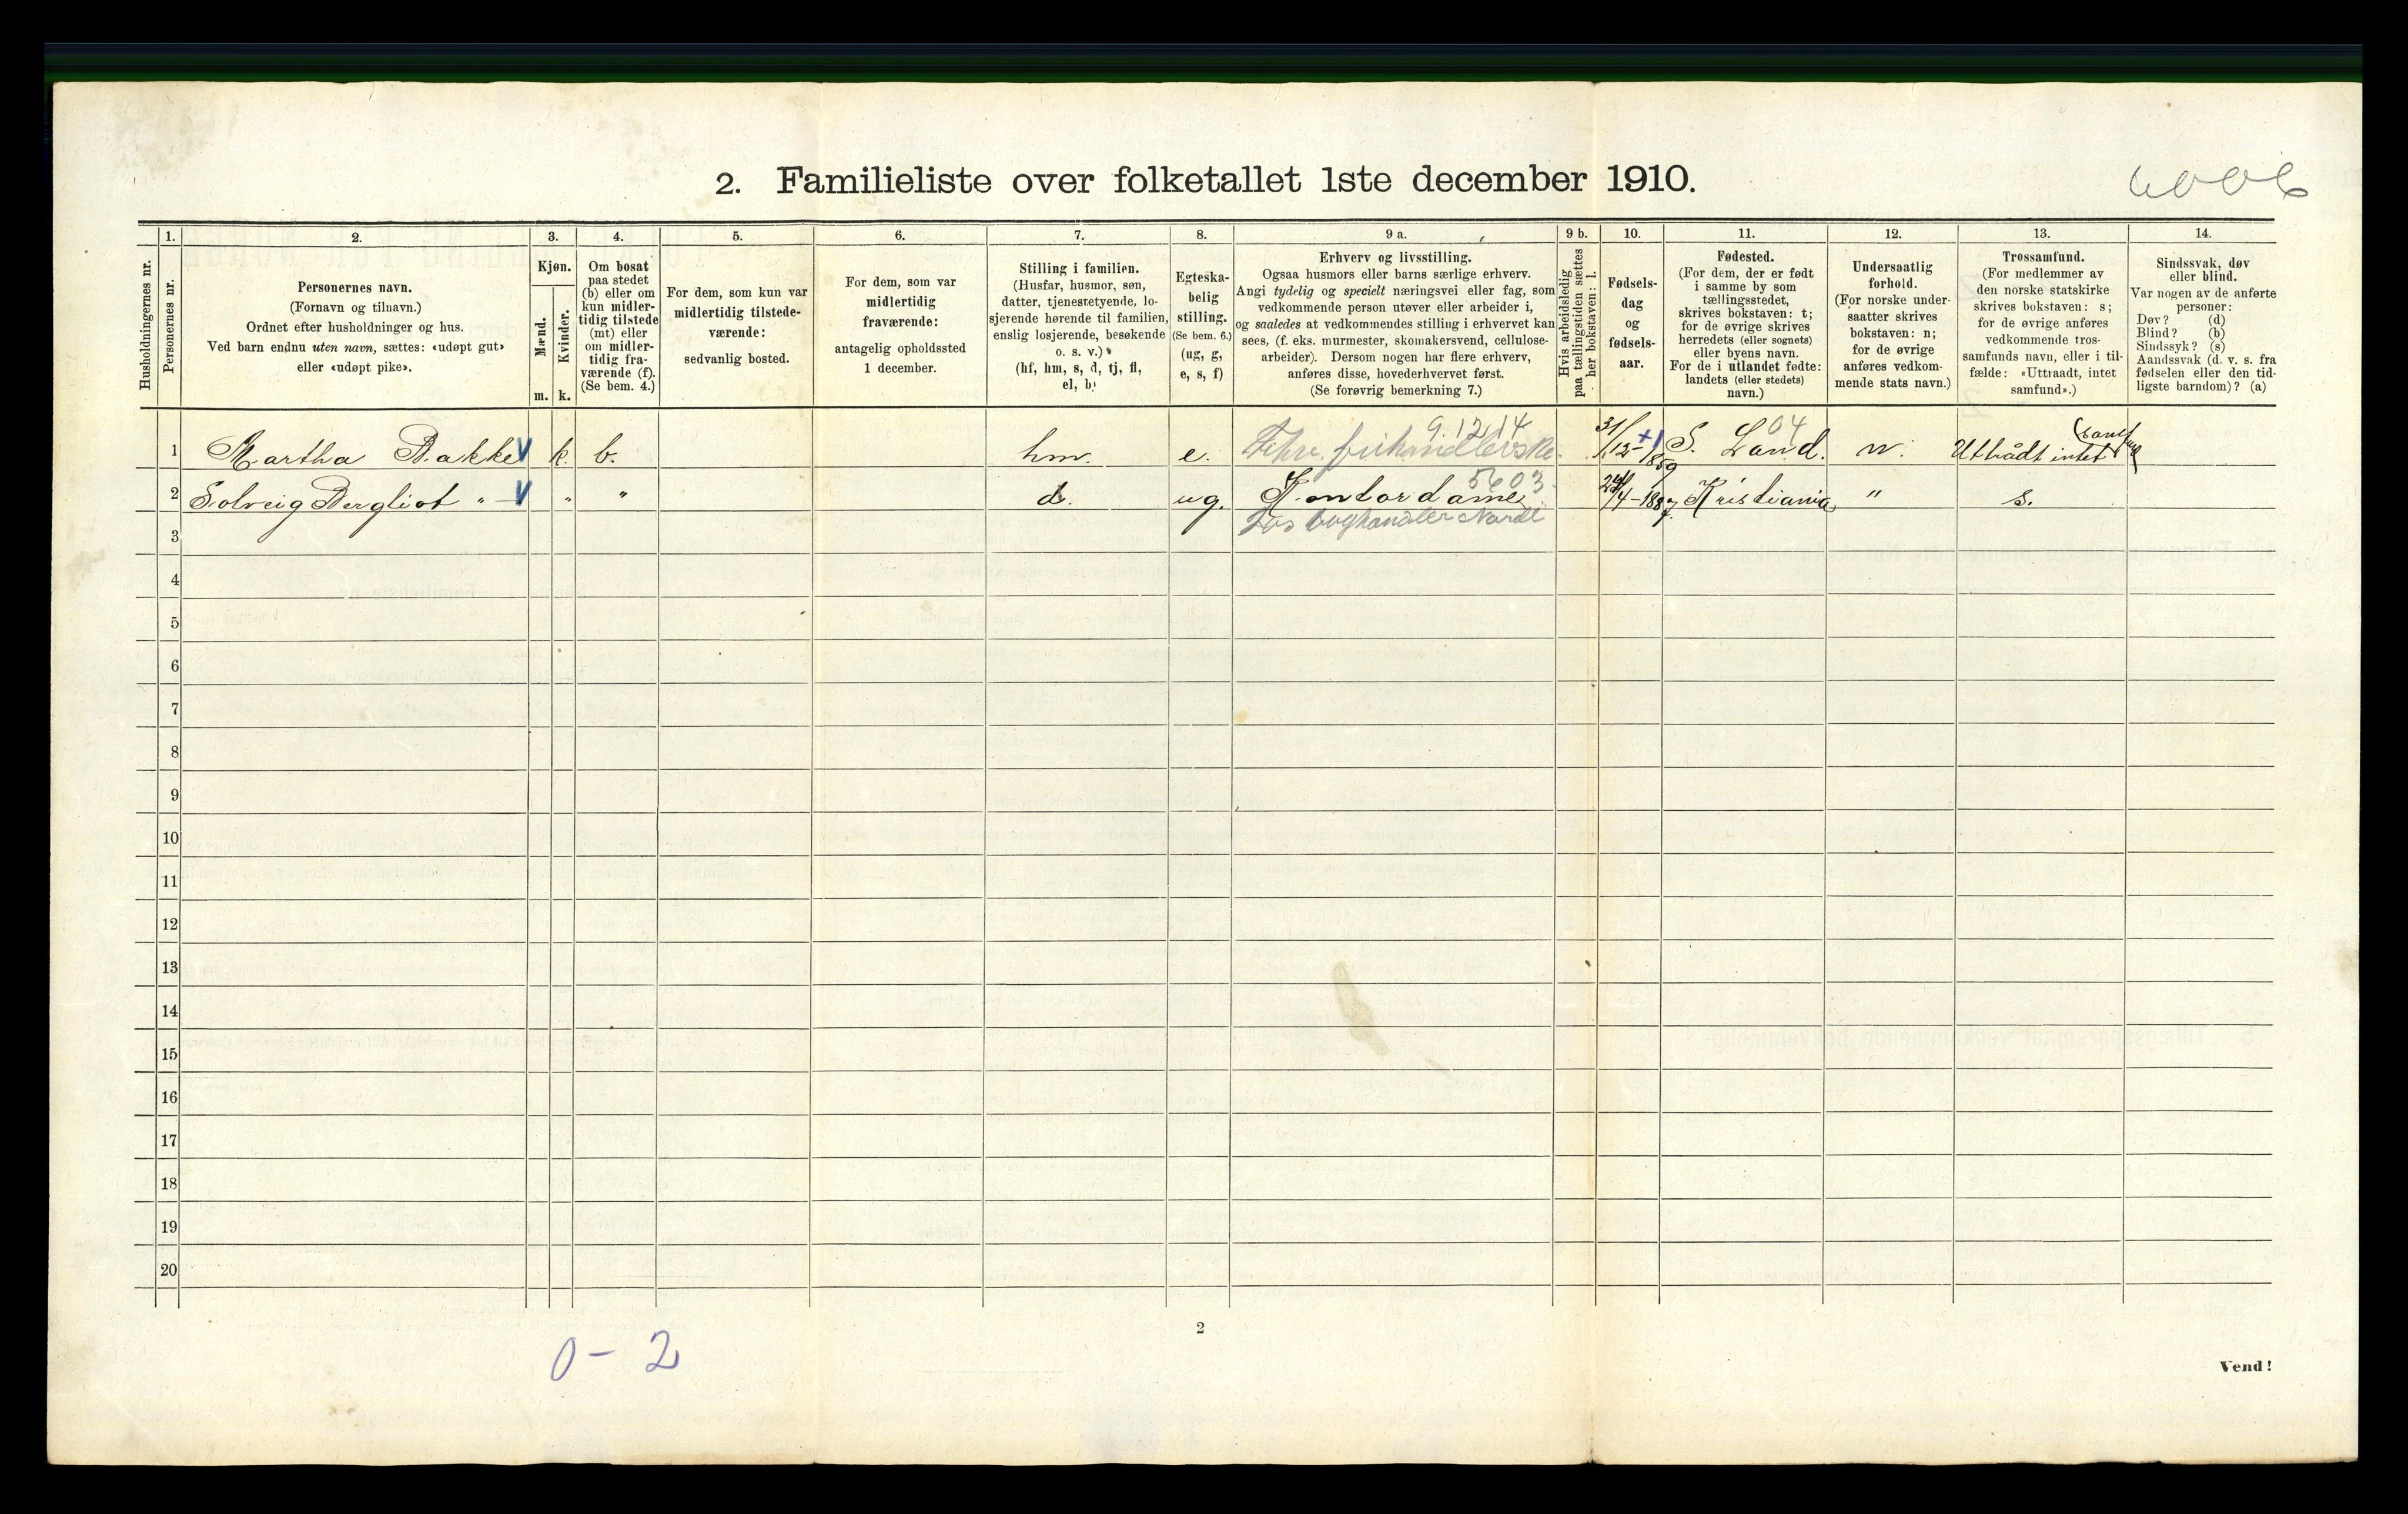 2. Familieliste over folketallet 1ste december 1910.
6006
1. 2. 3. 4. 5. 6. 7. 8. 9 a. 9 b. 10. 11. 12. 13. 14.
Husholdningernes nr.
Personernes nr.
Personernes navn.
(Fornavn og tilnavn.)
Ordnet efter husholdninger og hus.
Ved barn endnu uten navn, sættes: «udøpt gut»
eller «udøpt pike».
Kjøn.
Mænd.
Kvinder.
m. k.
Om bosat
paa stedet
(b) eller om
kun midler-
tidig tilstede
(mt) eller
om midler-
tidig fra-
værende (f).
(Se bem. 4.)
For dem, som kun var
midlertidig tilstede-
værende:
sedvanlig bosted.
For dem, som var
midlertidig
fraværende:
antagelig opholdssted
1 december.
Stilling i familien.
(Husfar, husmor, søn,
datter, tjenestetyende, lo-
sjerende hørende til familien,
enslig losjerende, besøkende
o. s. v.)
(hf, hm, s, d, tj, fl,
el, b)
Egteska-
belig
stilling.
(Se bem. 6.)
(ug, g,
e, s, f)
Erhverv og livsstilling.
Ogsaa husmors eller barns særlige erhverv.
Angi tydelig og specielt næringsvei eller fag, som
vedkommende person utøver eller arbeider i,
og saaledes at vedkommendes stilling i erhvervet kan
sees, (f. eks. murmester, skomakersvend, cellulose-
arbeider). Dersom nogen har flere erhverv,
anføres disse, hovederhvervet først.
(Se forøvrig bemerkning 7.)
Hvis arbeidsledig
paa tællingstiden sættes
her bokstaven: l.
Fødsels-
dag
og
fødsels-
aar.
Fødested.
(For dem, der er født
i samme by som
tællingsstedet,
skrives bokstaven: t;
for de øvrige skrives
herredets (eller sognets)
eller byens navn.
For de i utlandet fødte:
landets (eller stedets)
navn.)
Undersaatlig
forhold.
(For norske under-
saatter skrives
bokstaven: n;
for de øvrige
anføres vedkom-
mende stats navn.)
Trossamfund.
(For medlemmer av
den norske statskirke
skrives bokstaven: s;
for de øvrige anføres
vedkommende tros-
samfunds navn, eller i til-
fælde: «Uttraadt, intet
samfund».)
Sindssvak, døv
eller blind.
Var nogen av de anførte
personer:
Døv? (d)
Blind? (b)
Sindssyk? (s)
Aandssvak (d. v. s. fra
fødselen eller den tid-
ligste barndom)? (a)
9.12.14 04
1 Martha Bakke V k. b. hm. e. 31/12-1859 +1 S. Land. n. intet
5603
2 Solveig Bergliot " — V " " d. ug. Kontordame 24/4-1887. Kristiania " s.
boghandler
3
4
5
6
7
8
9
10
11
12
13
14
15
16
17
18
19
20
0 - 2
2
Vend!